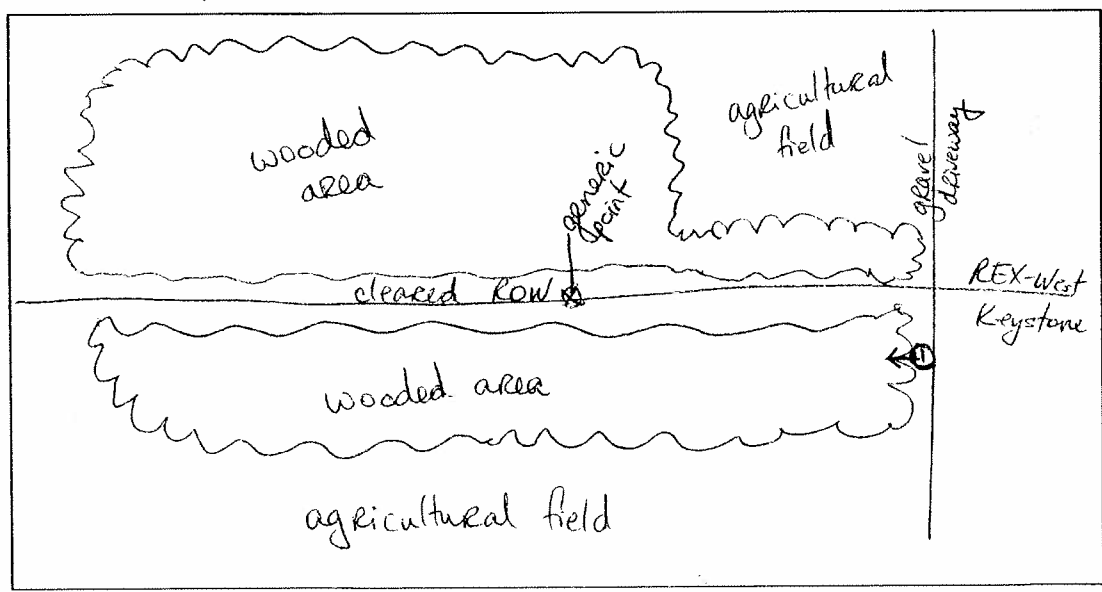 wooded
area
agricultural
field
gravel
driveway
generic
point
cleared ROW
REX-West
Keystone
1
wooded area
agricultural field